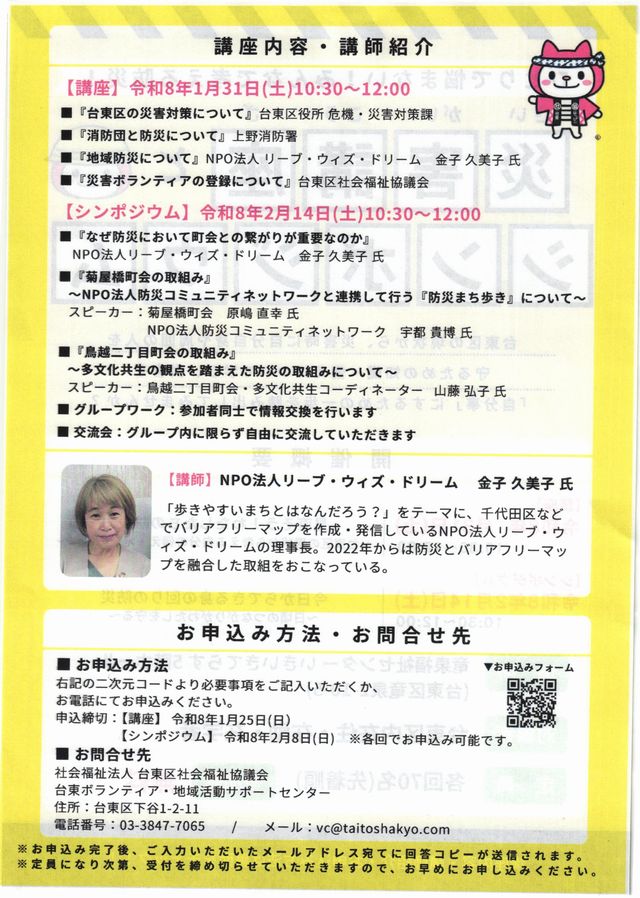 講座内容・講師紹介
【講座】令和8年1月31日(土)10:30～12:00
■『台東区の災害対策について』台東区役所 危機・災害対策課
■『消防団と防災について』上野消防署
■『地域防災について』NPO法人 リーブ・ウィズ・ドリーム 金子 久美子 氏
■『災害ボランティアの登録について』台東区社会福祉協議会
【シンポジウム】令和8年2月14日(土)10:30～12:00
■『なぜ防災において町会との繋がりが重要なのか』
NPO法人 リーブ・ウィズ・ドリーム 金子 久美子 氏
■『菊屋橋町会の取組み』
～NPO法人防災コミュニティネットワークと連携して行う『防災まち歩き』について～
スピーカー：菊屋橋町会 原嶋 直幸 氏
NPO法人防災コミュニティネットワーク 宇都 貴博 氏
■『鳥越二丁目町会の取組み』
～多文化共生の観点を踏まえた防災の取組みについて～
スピーカー：鳥越二丁目町会・多文化共生コーディネーター 山藤 弘子 氏
■ グループワーク：参加者同士で情報交換を行います
■ 交流会：グループ内に限らず自由に交流していただきます
【講師】NPO法人リーブ・ウィズ・ドリーム 金子 久美子 氏
「歩きやすいまちとはなんだろう？」をテーマに、千代田区など
でバリアフリーマップを作成・発信しているNPO法人リーブ・ウ
ィズ・ドリームの理事長。2022年からは防災とバリアフリーマッ
プを融合した取組をおこなっている。
お申込み方法・お問合せ先
■ お申込み方法
右記の二次元コードより必要事項をご記入いただくか、
お電話にてお申込みください。
申込締切：【講座】 令和8年1月25日(日)
【シンポジウム】 令和8年2月8日(日) ※各回でお申込み可能です。
▼お申込みフォーム
■ お問合せ先
社会福祉法人 台東区社会福祉協議会
台東ボランティア・地域活動サポートセンター
住所：台東区下谷1-2-11
電話番号：03-3847-7065 / メール：vc@taitoshakyo.com
※お申込み完了後、ご入力いただいたメールアドレス宛てに回答コピーが送信されます。
※定員になり次第、受付を締め切らせていただきますので、お早めにお申し込みください。